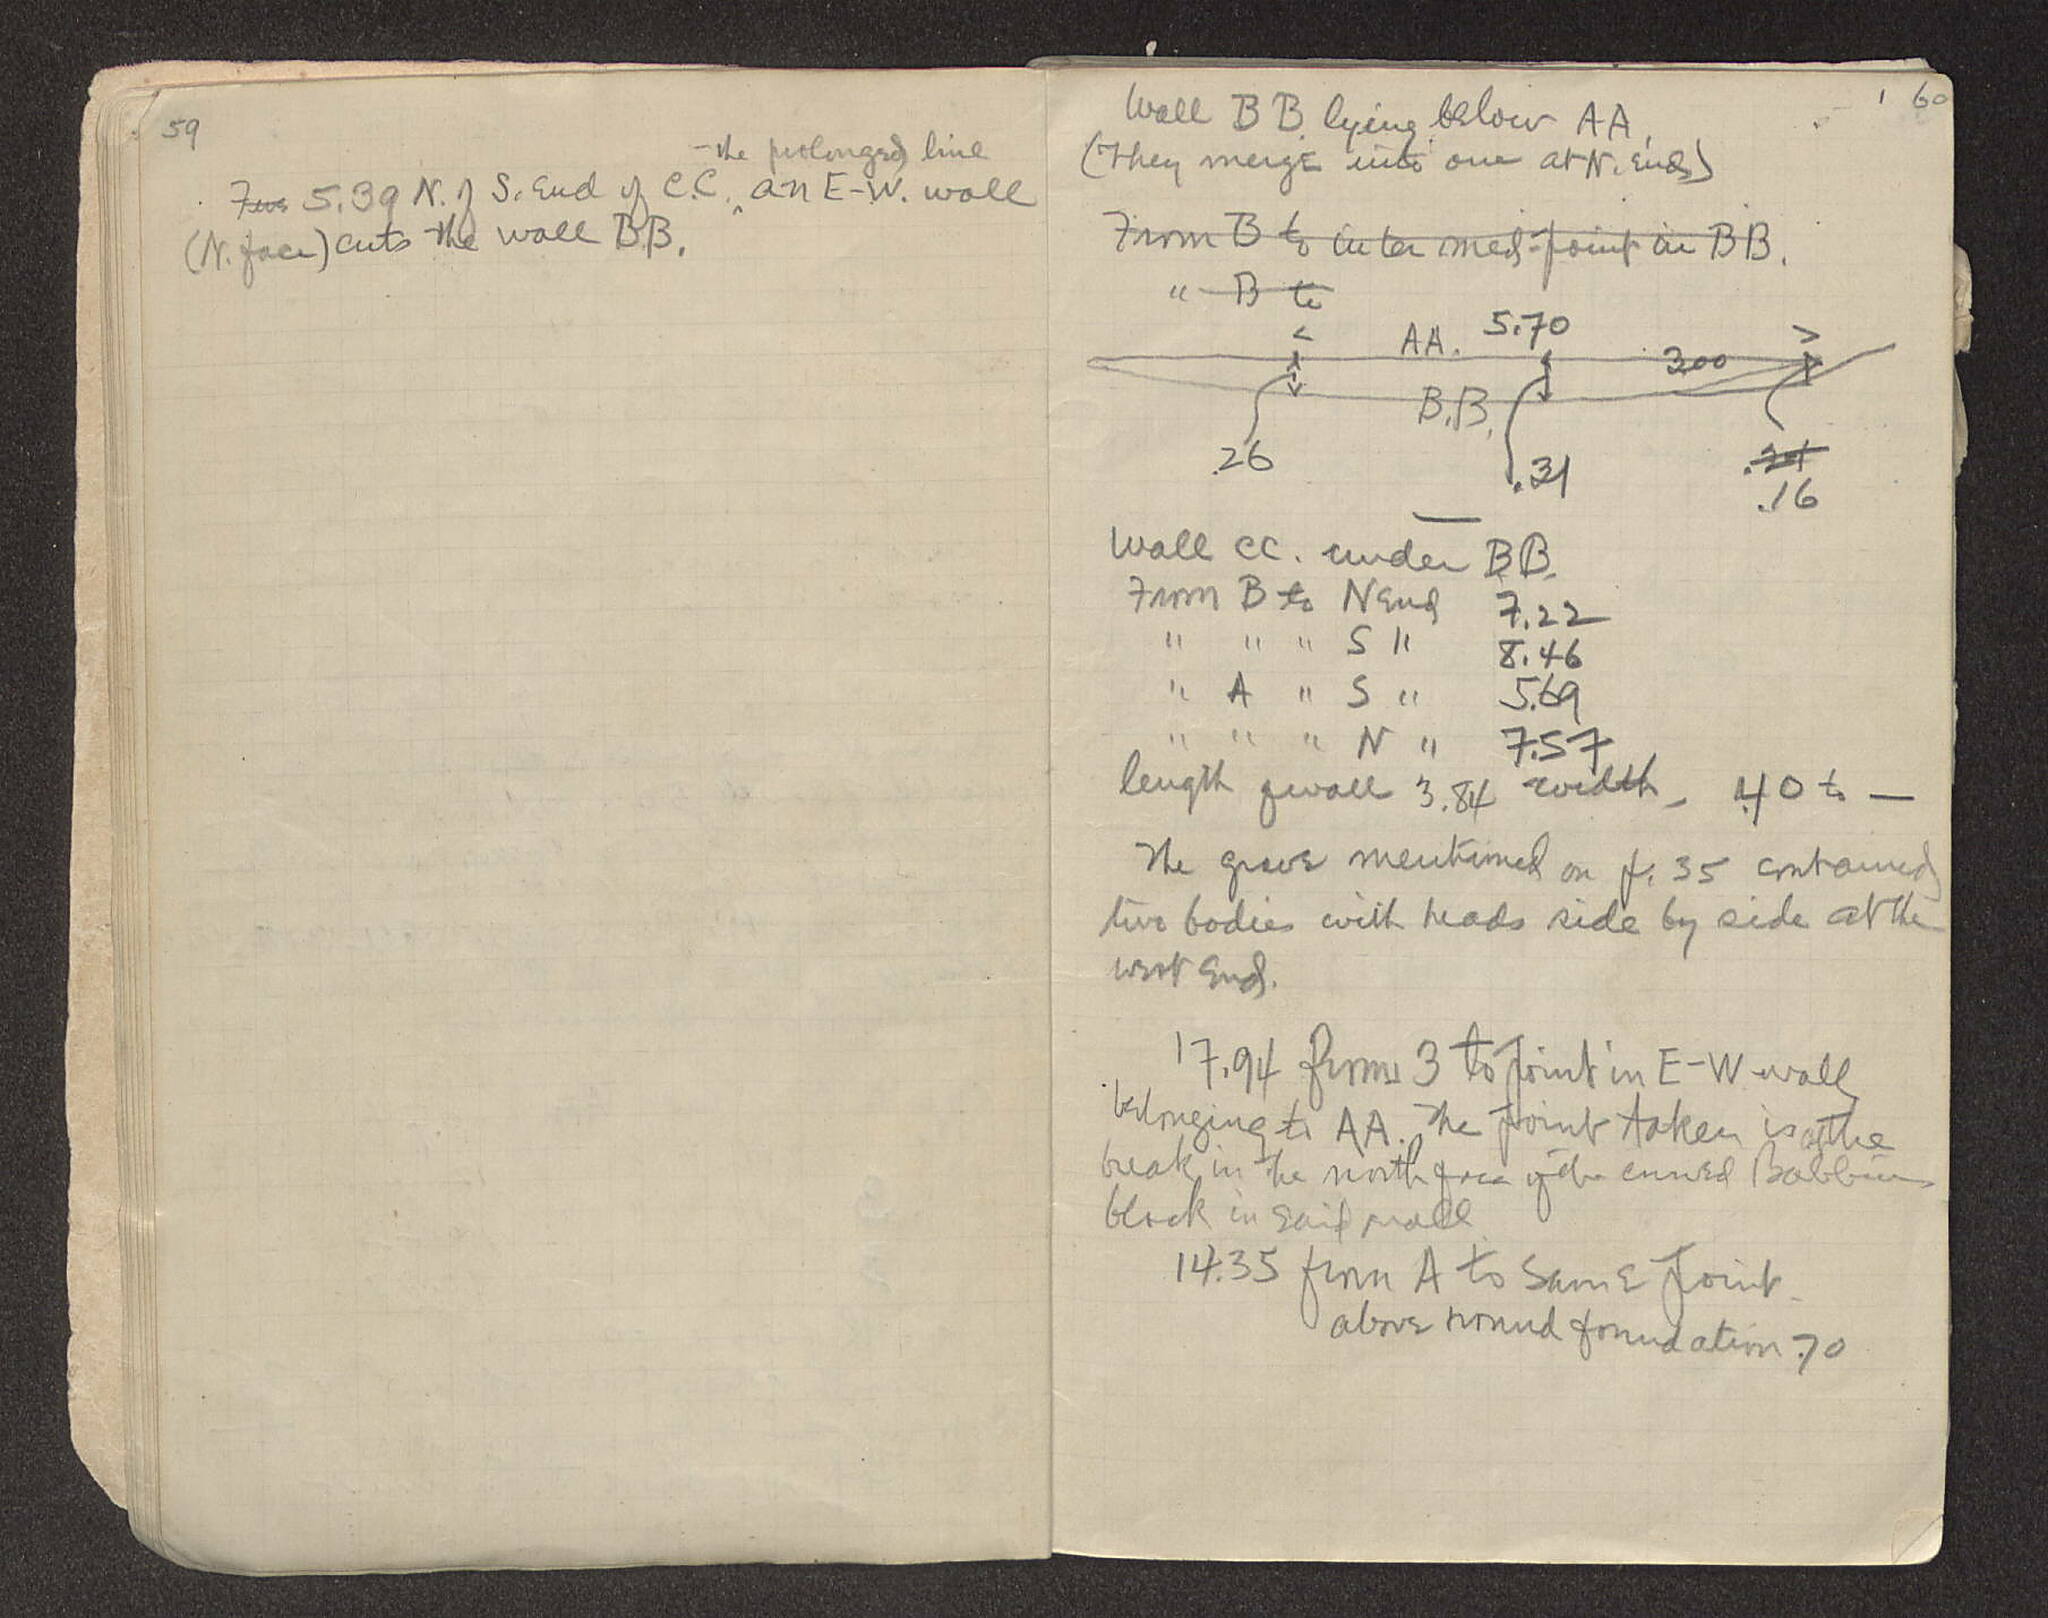 59
the prolonged line
5.39 N. of S. End of C.C. ^ an E-W. wall
(N. face) cuts the wall BB.
60
Wall BB. lying below AA.
(They merge into one at N. End)
From B to intermed-point in BB.
" B to
< AA. 5.70 >
3.00
B.B.
.26 .31 .21
.16
Wall CC. under BB.
From B to N End 7.22
" " " S " 8.46
" A " S " 5.69
" " " N " 7.57
length of wall 3.84 width - .40 to —
The grave mentioned on p. 35 contained
two bodies with heads side by side at the
west End.
17.94 from 3 to point in E-W wall
belonging to AA. The point taken is at the
break in the north face of the curved
block in said wall
14.35 from A to same point
above round foundation .70